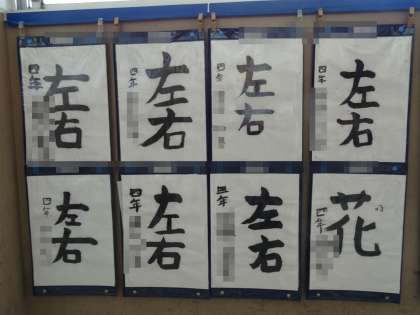 左右
四年
左右
四年
左右
四年
左右
四年
左右
四年
左右
四年
左右
四年
花
四年